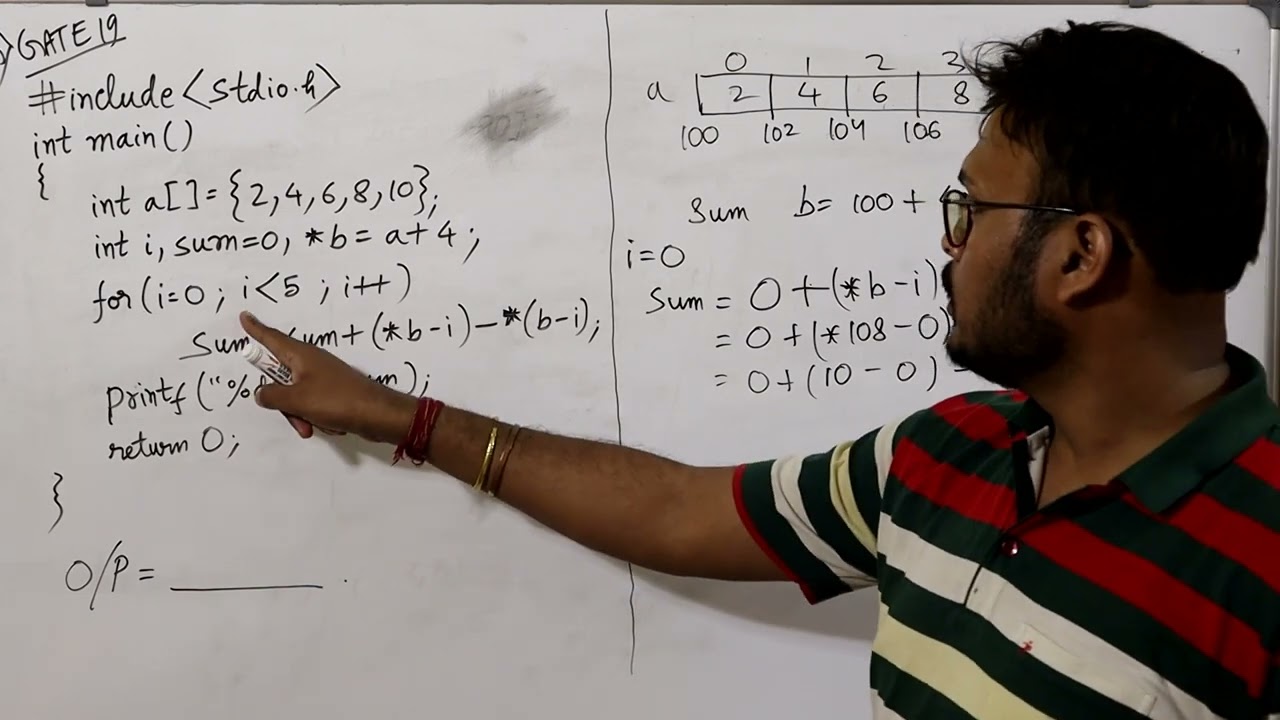 GATE 19
#include <stdio.h>
int main()
{
int a[] = {2,4,6,8,10};
int i, sum=0, *b = a+4;
for(i=0; i<5; i++)
Sum + (*b-i) - *(b-i);
printf("%
return 0;
}
O/P = ________ .
0 1 2 3
a 2 4 6 8
100 102 104 106
Sum b= 100 +
i=0
Sum = 0 + (*b-i)
= 0 + (*108-0)
= 0 + (10-0) -